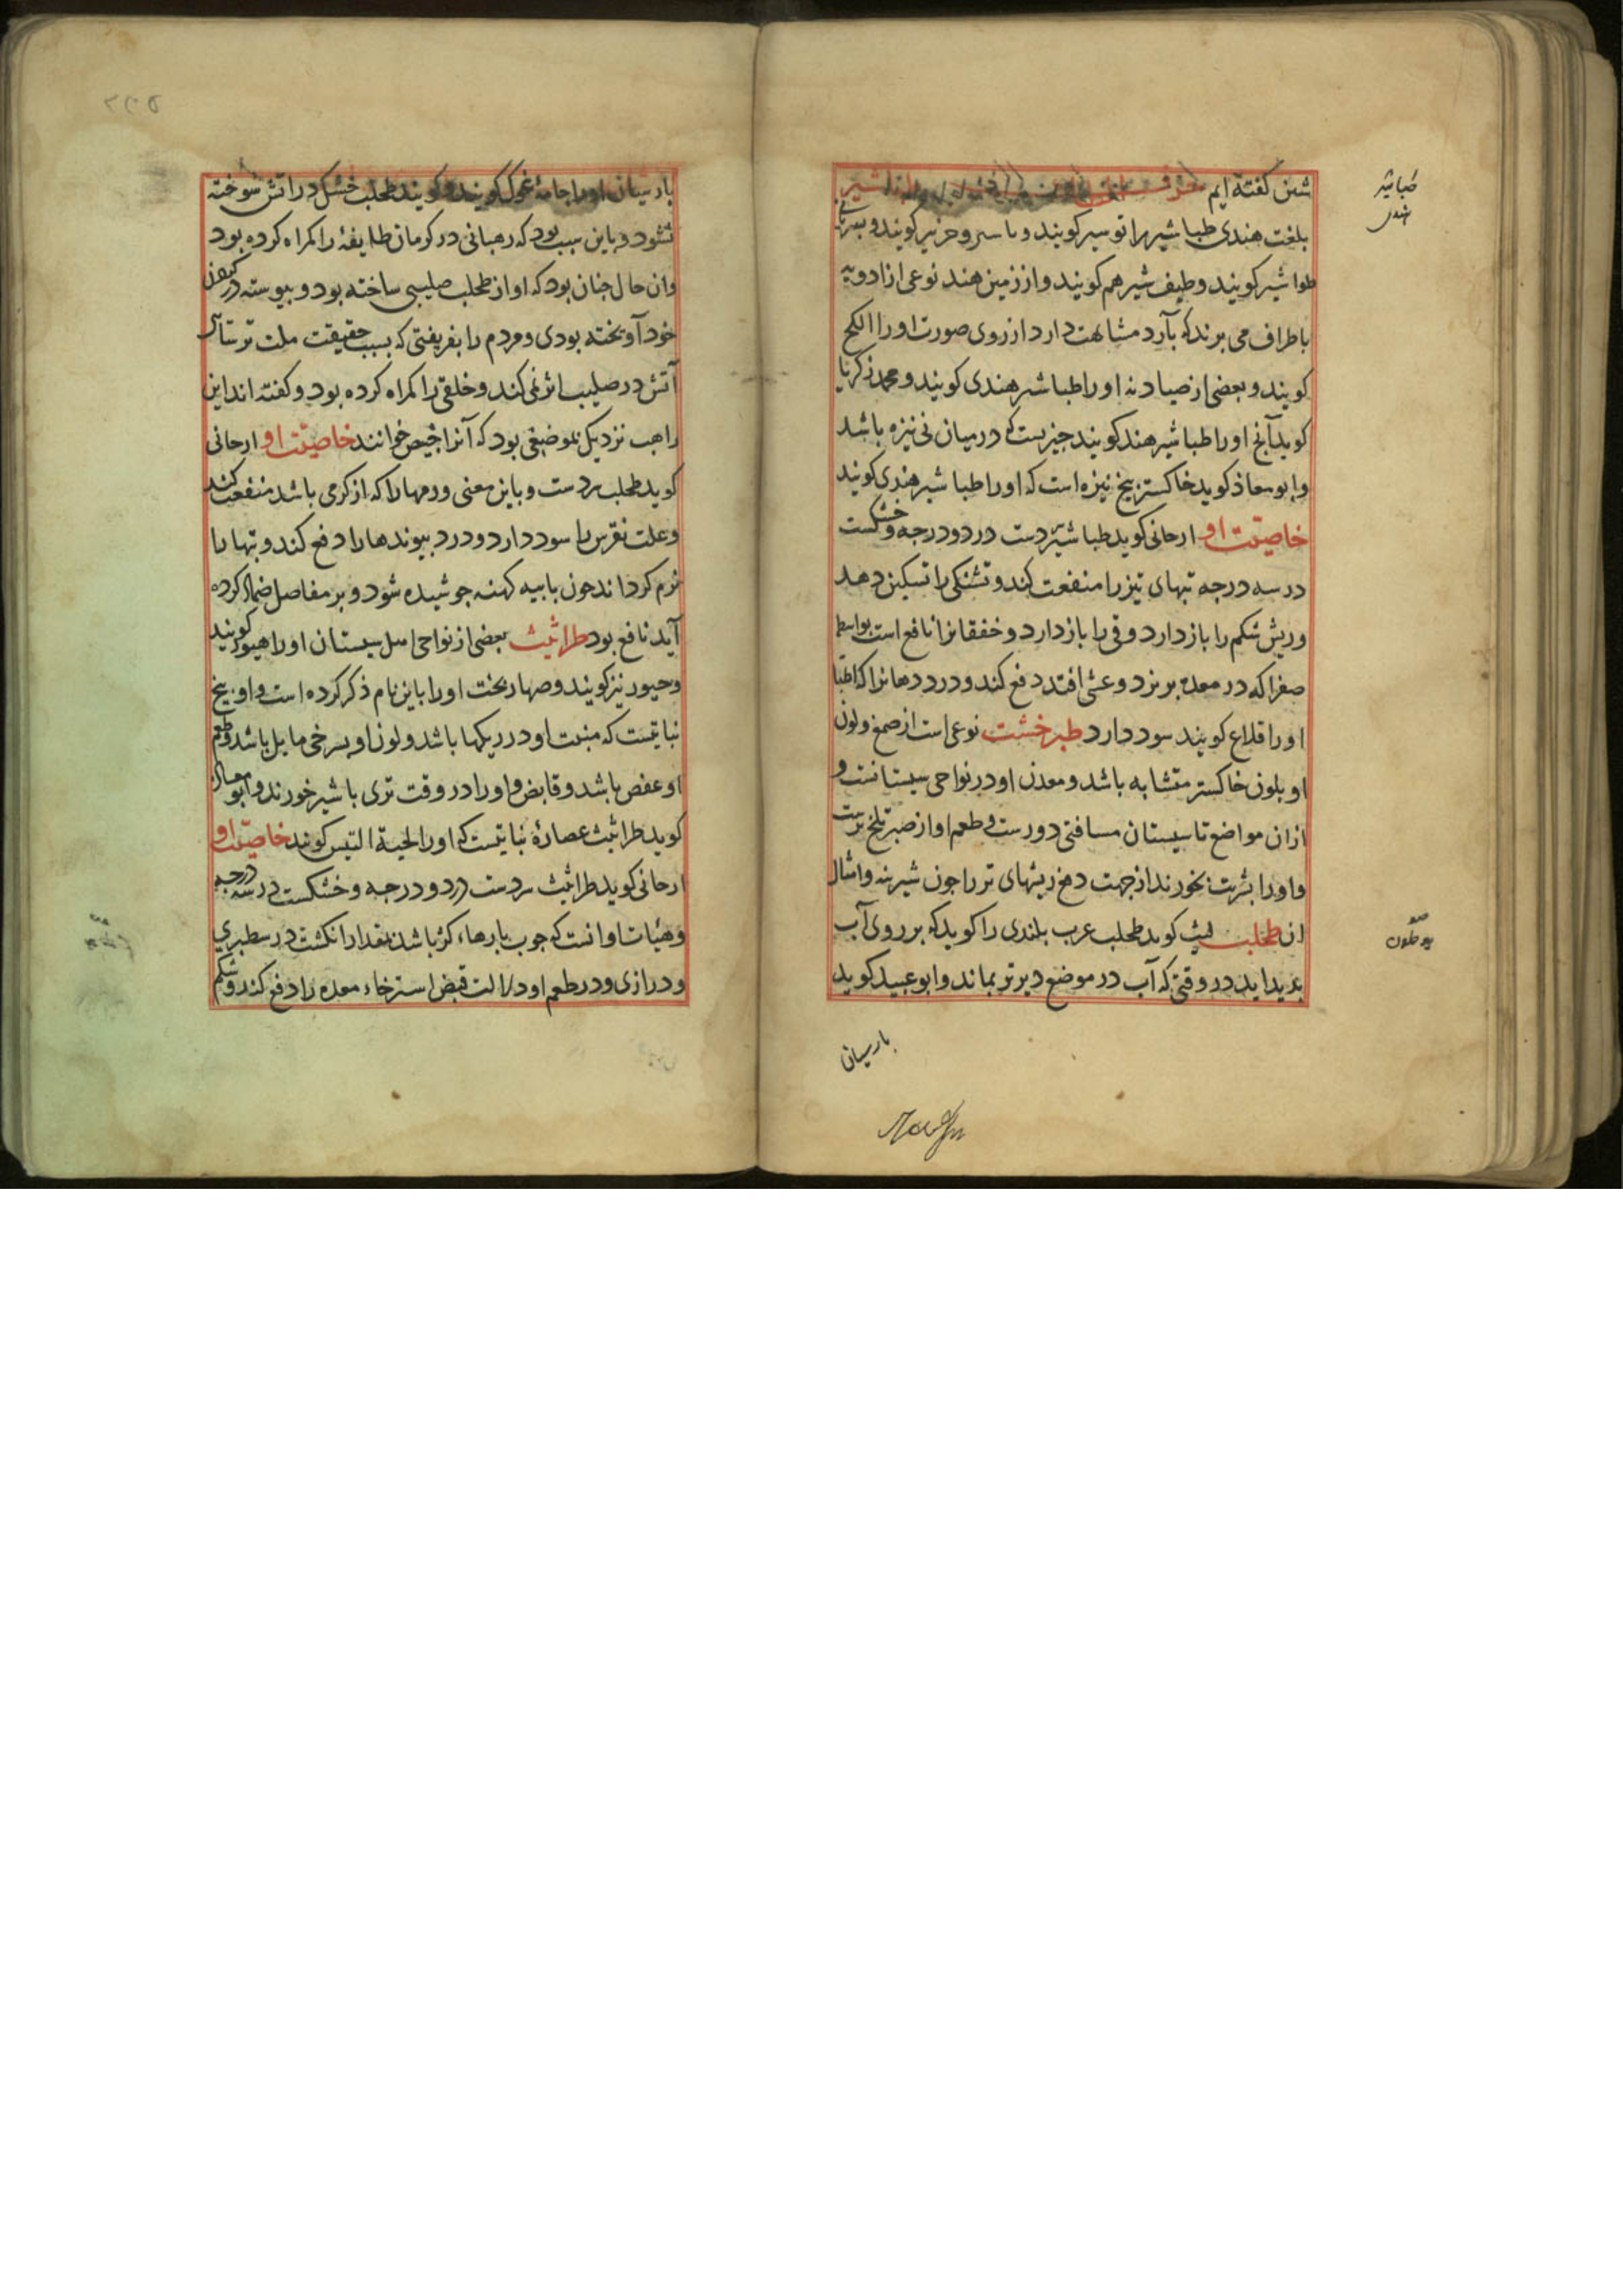 شین کفته ایم
بلغت هندی طباشیر را توسیر کویند و کویند و بسریانی
طواشیر کویند و طیف شیر هم کویند و از زمین هند نوعی از ادویه
باطراف می برند که بآرد مشابهت دارد از روی صورت او را
کویند و بعضی از صیادنه او را طباشیر هندی کویند و محمد زکریا
کوید آنج او را طباشیر هند کویند جیزیست که درمیان نی نیزه باشد
و ابو معاذ کوید خاکستر بیخ نیزه است که او را طباشیر هندی کویند
خاصیت او ارجانی کوید طباشیر سردست در دو درجه و خشکست
در سه درجه تبهای تیز را منفعت کند و تشنکی را تسکین دهد
و ریش شکم را باز دارد و قی را باز دارد و خفقانرا نافع است بواسطه
صفرا که در معده بریزد و غشی افتد دفع کند و درد دهانرا که اطبا
او را قلاع کویند سود دارد طبرخشت نوعی است از صمغ و لون
او بلون خاکستر متشابه باشد و معدن او در نواحی سیستانست و
ازان مواضع تا سیستان مسافتی دورست و طعم او از صبر تلخ ترست
و او را بشربت بخورند از جهت دفع ریشهای تر را جون شیرینه و امثال
ان طحلب لیث کوید طحلب عرب بلندی را کوید که بر روی آب
بدید اید در وقتی که آب در موضع دیرتر بماند و ابو عبید کوید
بارسیان
طباشیر
هندی
بارسیان او را جامهٔ غوک کویند و کویند طحلب خشک در اتش سوخته
نشود و باین سبب بود که رهبانی در کرمان طایفهٔ را کمراه کرده بود
و ان حال جنان بود که او از طحلب صلیبی ساخته بود و بیوسته در کردن
خود آویخته بودی و مردم را بفریفتی که بسبب حقیقت ملت ترسائی
آتش در صلیب اثر نمی کند و خلقی را کمراه کرده بود و کفته اند این
راهب نزدیک بموضعی بود که آنرا خوانند خاصیت او ارجانی
کوید طحلب سردست و باین معنی ورمها را که از کرمی باشد منفعت کند
و علت نقرس را سود دارد و درد بیوندها را دفع کند و تبها را
نرم کرداند جون با بیه کهنه جوشیده شود و بر مفاصل ضماد کرده
آید نافع بود طراثیث بعضی از نواحی اهل سیستان او را هیور کویند
و حیور نیز کویند و صهاربخت او را باین نام ذکر کرده است و او بیخ
نباتیست که منبت او در ریکها باشد و لون او بسرخی مایل باشد و طعم
او عفص باشد و قابض و او را در وقت تری با شیر خورند و ابو معاذ
کوید طراثیث عصارهٔ نباتیست که او را لحیة التیس کویند خاصیت او
ارجانی کوید طراثیث سردست در دو درجه و خشکست در سه درجه
و هیات او انست که جوب بارهاء کژ باشد بمقدار انکشت در سطبری
و درازی و در طعم او دلالت قبض استرخاء معده را دفع کند و شکم